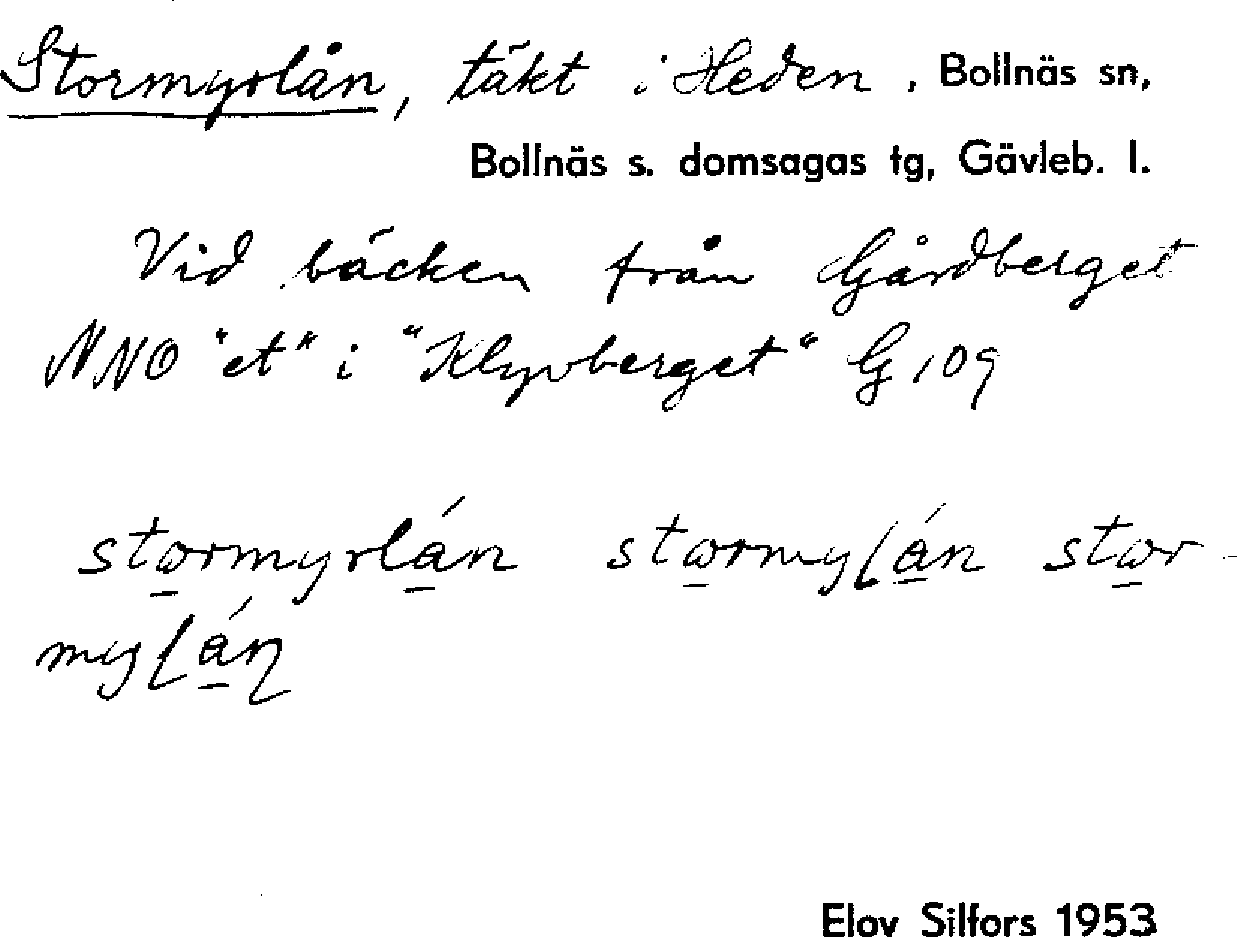 Stormyrlån, täkt i Heden. Bollnäs sn,
Bollnäs s. domsagas tg, Gävleb. l.
Vid bäcken från Gårdberget
NNO "et" i "Klyvberget" G 109
stormyrlán stormyɭán stor-
myɭáɳ
Elov Silfors 1953